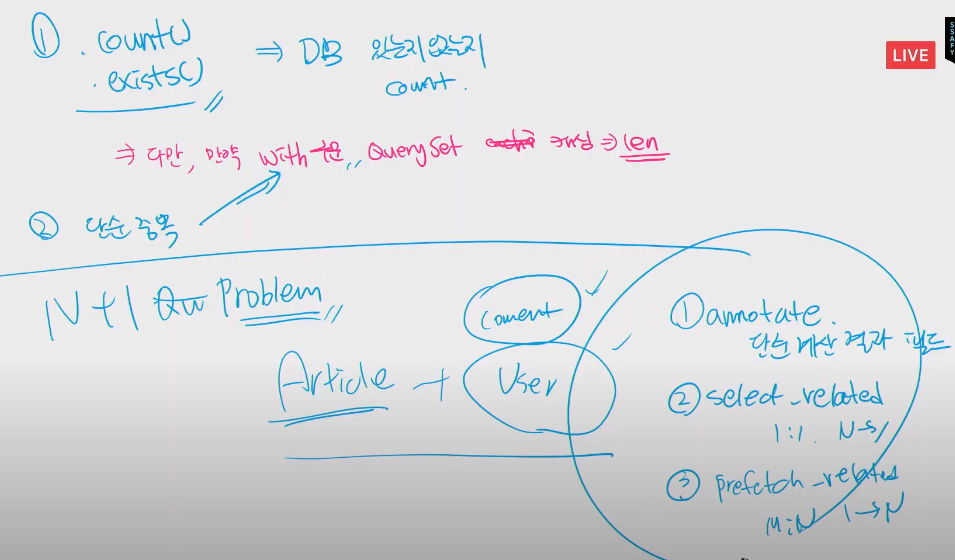 ① .count()
.exists()
⇒ DB 있는지 없는지
count.
⇒ 다만, 만약 with 문,, QuerySet ⇒ len
② 단순 중복
N+1 Qu Problem
coment
Article + User
① annotate.
단순 계산 결과 필드
② select_related
1:1. N→1
③ prefetch_related
M:N 1→N
LIVE
SSAFY